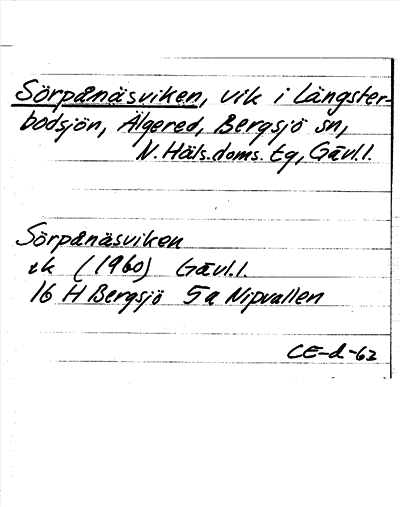 Sörpånäsviken, vik i Långster-
bodsjön, Älgered, Bergsjö sn,
N. Häls. doms. tg, Gävl.l.
Sörpånäsviken
ek (1960) Gävl.l.
16 H Bergsjö 5a Nipvallen
CE-d-62